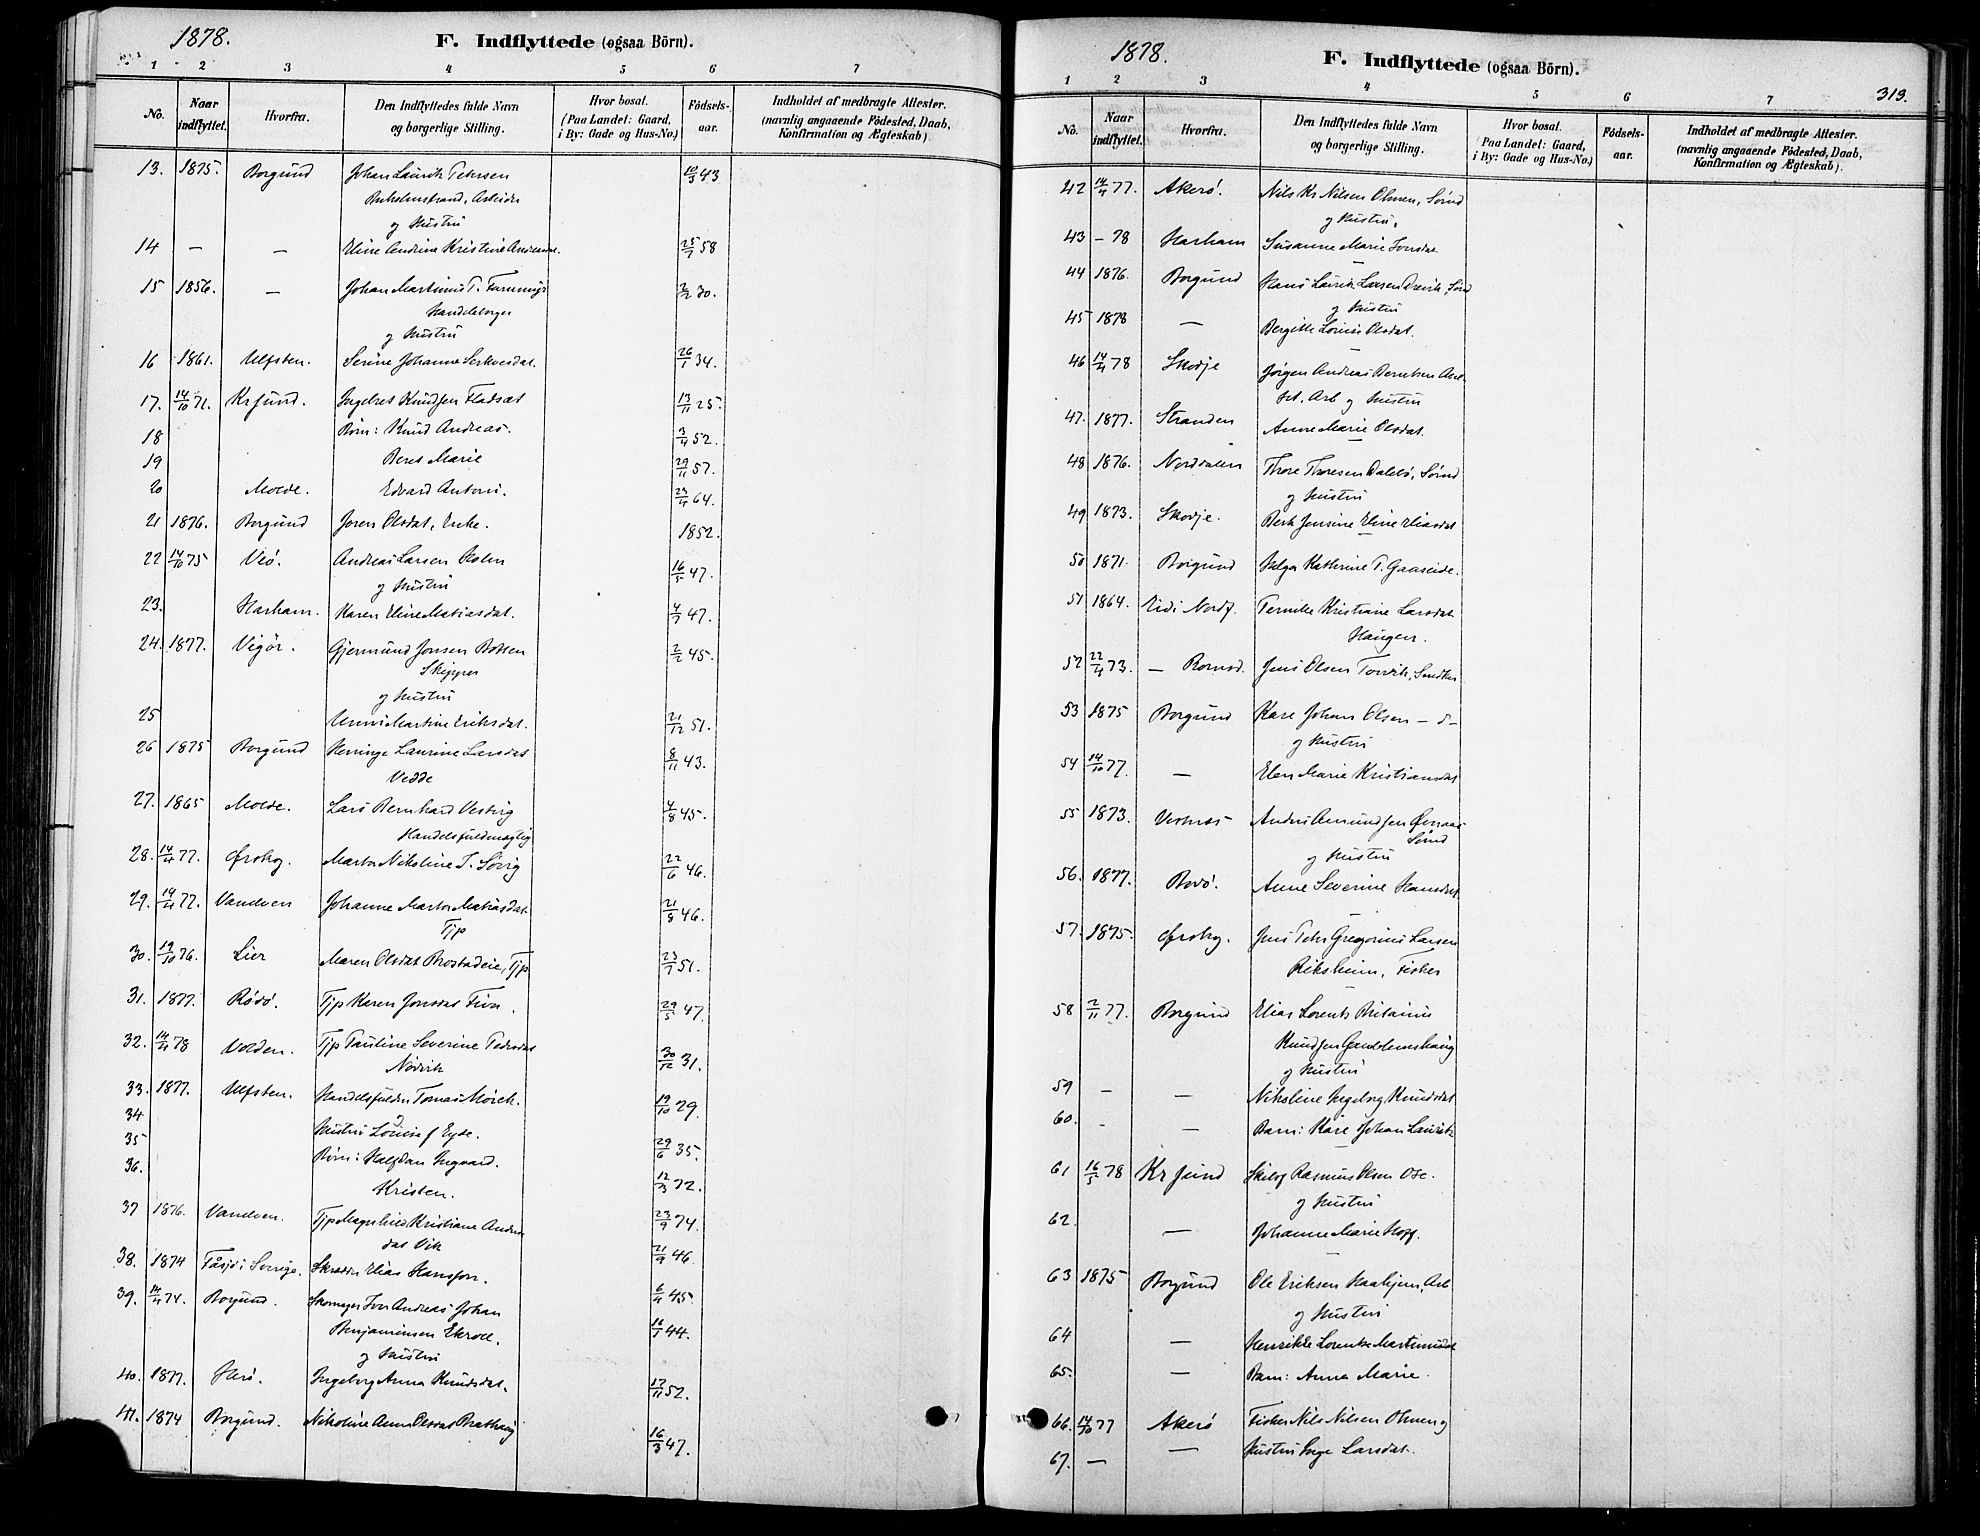 1878.
F. Indflyttede (ogsaa Börn).
1 2 3 4 5 6 7
No. Naar indflyttet. Hvorfra. Den Indflyttedes fulde Navn og borgerlige Stilling. Hvor bosat. (Paa Landet: Gaard, i By: Gade og Hus-No.) Födsels-aar. Indholdet af medbragte Attester. (navnlig angaaende Födested, Daab, Konfirmation og Ægteskab).
13. 1875. Borgund Johan Laurits Petersen 10/3 43
Arbeider
og Hustru
14 — — Eline Andrine Kristine Andreasdat. 25/7 58
15 1856. — Johan Martinus T. 2/2 30.
Handelsborger
og Hustru
16 1861. Ulfsten. Serine Johanne 26/1 34.
17. 14/10 72. Krsund. Ingebret Knudsen Fladset 13/11 25.
18 Börn: Knud Andreas. 3/4 52.
19 Beret Marie 29/11 57.
20 Molde. Edvard Anton. 23/4 64.
21 1876. Borgund Joren Olsdat, Enke. 1852.
22 14/10 75 Veö. Andreas Larsen Holen 16/5 47.
og Hustru
23. Harham. Karen Eline Matiasdat. 4/7 47.
24. 1877. Vigör. Gjermund Jonsen 2/2 45.
Skipper
og Hustru
25 Martine Eriksdat. 21/12 51.
26 1875 Borgund Laurine Larsdat 8/11 43.
Vedde
27. 1865 Molde. Lars Bernhard Vestvig 4/8 45.
Handelsfuldmægtig
28. 14/4 77. Ørskog. Marta Nikoline T. Sövig 22/6 46.
29. 14/4 77. Vandven Johanne Marta Matiasdat 21/8 46.
Tjp
30. 19/10 76. Lier Maren Olsdat Brostadeie, Tjp 23/7 51.
31. 1877. Rödö. Tjp Karen Jonsdat 29/5 47.
32. 14/4 78 Volden. Tjp Pauline Severine Pedersdat 30/12 31.
33. 1877. Ulfsten. Handelsfuldm Tomas Mörch. 19/10 29.
34 Hustru Louise f Eyde. 29/6 35.
35 Börn: Halfdan Ingvard. 12/3 72.
36. Kristen. 23/9 74.
37 1876. Vandven. Tjp Magnhild Kristiane Andreas
dat Vik 21/9 46.
38. 1874 i Sverige. Skrædder Elias Hansson. 6/4 45.
39. 14/4 74. Borgund. Skomager Iver Andreas Johan 16/1 44.
Benjaminsen
og Hustru
40. 1877. Herö. Ingeborg Anna Knudsdat. 17/11 52.
41. 1874 Borgund. Nikoline Anne Olsdat 16/3 47.
1878.
F. Indflyttede (ogsaa Börn).
313.
1 2 3 4 5 6 7
No. Naar indflyttet. Hvorfra. Den Indflyttedes fulde Navn og borgerlige Stilling. Hvor bosat. (Paa Landet: Gaard, i By: Gade og Hus-No.) Födsels-aar. Indholdet af medbragte Attester. (navnlig angaaende Födested, Daab, Konfirmation og Ægteskab).
42 14/4 77. Akerö. Nils Kr Nilsen Ohnen,
og Hustru.
43 — 78 Harham Susanne Marie Iversdat
44 1876. Borgund Hans Laurits Larsen
og Hustru
45 1878 — Bergitte Louise Olsdat.
46 14/4 78 Skodje Jörgen Andreas Berntsen
Arb og Hustru
47. 1877. Stranden Anne Marie Olsdat.
48 1876. Norddalen Thore Thoresen
og Hustru
49 1873. Skodje. Jensine Eline Eliasdat
50 1871. Borgund Helga Kathrine T. Gaaseide.
51 1864. Eid i Nordf. Pernille Kristiane Larsdat
Haugen.
52 22/4 73. — Romsd. Jens Olsen Torvik,
53 1875 Borgund Kare Johan Olsen — d —
og Hustru
54 14/10 77. — Elen Marie Kristiansdat
55 1873. Vestnæs Anders Amundsen
og Hustru
56. 1877. Bodö. Anne Severine Hansdat
57. 1875. Ørskog. Jens Peter Gregorius Larsen
Riksheim, Fisker
58 2/11 77. Borgund Elias Lorents Britanius
Knudsen
og Hustru
59 — — Nikoline Ingeborg Knudsdat
60. — — Barn: Kare Johan Laurits
61 16/5 78 Krsund Rasmus Olsen Ose.
og Hustru
62. — Johanne Marie Hoff.
63 1875 Borgund Ole Eriksen Haahjem, Arb
og Hustru
64 — Henrikke Lorentse Martinusdat
65. — Barn: Anna Marie.
66. 14/10 77 Akerö Fisker Nils Nilsen Ohnen og
67. — — Hustru Inge Larsdat.